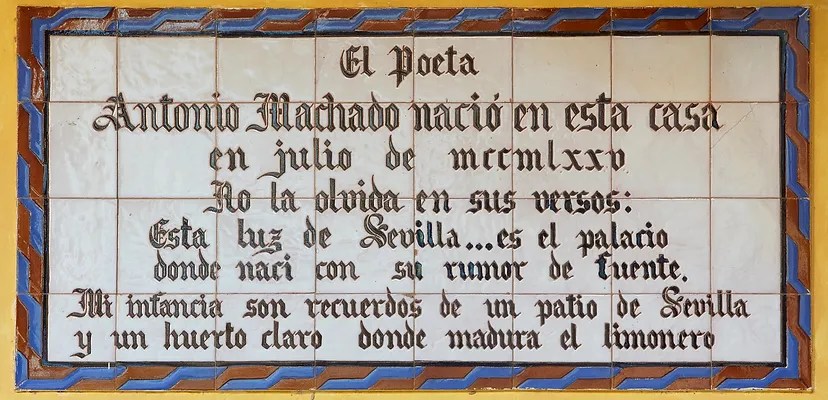 El Poeta
Antonio Machado nació en esta casa
en julio de mccmlxxv
No la olvida en sus versos:
Esta luz de Sevilla...es el palacio
donde naci con su rumor de fuente.
Mi infancia son recuerdos de un patio de Sevilla
y un huerto claro donde madura el limonero